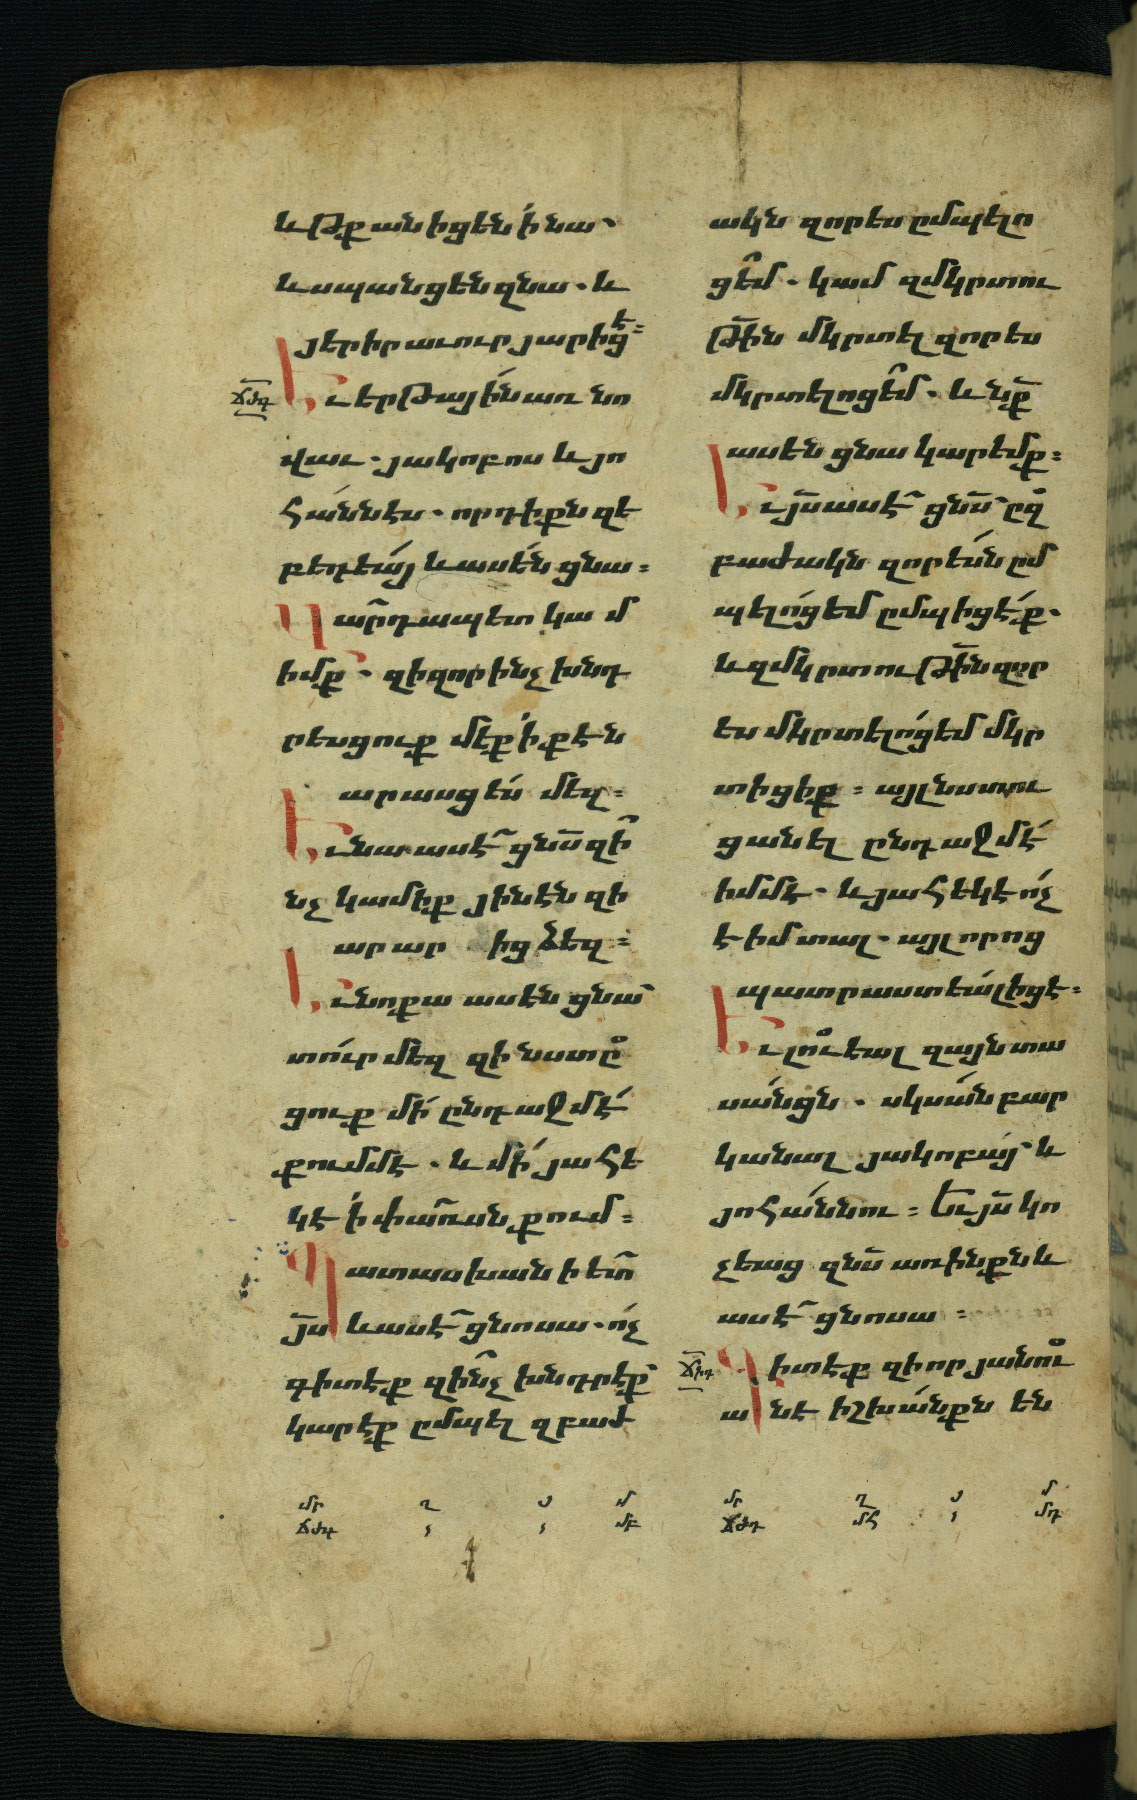 և թքանիցեն ի նա.
և սպանցեն զնա. և
յերիր աւուր յարիցէ։
ՃԺԳ Եւ երթային առ նո
վաւ. յակոբոս և յո
հաննէս. որդիքն զե
բեդեայ և ասեն ցնա։
Վարդապետ կամ մ
իմք. զի զոր ինչ խնդ
րեսցուք մեք ի քէն
արասցես մեզ։
Եւ նա ասէ ցնս զի
նչ կամիք յինէն զի
արարից ձեզ։
Եւ նոքա ասեն ցնա
տուր մեզ զի նստը
ցուք մի ընդ աջմէ
քումմէ. և մի յահե
կէ ի փառսն քում։
Պատասխանի ետ
յս և ասէ ցնոսա. ոչ
գիտէք զինչ խնդրէք
կարէք ըմպել զբաժ
ակն զոր ես ըմպելո
ցեմ. կամ զմկրտու
թին մկրտել զոր ես
մկրտելոցեմ. և նք
ասեն ցնա կարեմք։
Եւ յս ասէ ցնս ըզ
բաժակն զոր եսն ըմ
պելոցեմ ըմպիցէք.
և զմկրտութինզոր
ես մկրտելոցեմ մկր
տիցիք։ այլ նստու
ցանել ընդ աջմէ
իմմէ. և յահեկէ ոչ
է իմ տալ. այլ որոց
պատրաստեալ իցէ։
Եւ լուեալ զայն տա
սանցն. սկսան բար
կանալ յակոբայ և
յոհաննու։ Եւ յս կո
չեաց զնս առ ինքն և
ասէ ցնոսա։
ՃԺԴ Գիտէք զի որ յանու
անէ իշխանքն են
մր ղ յ մ
ՃԺԳ մբ
մր ղ յ մ
ՃԺԴ մհ մդ